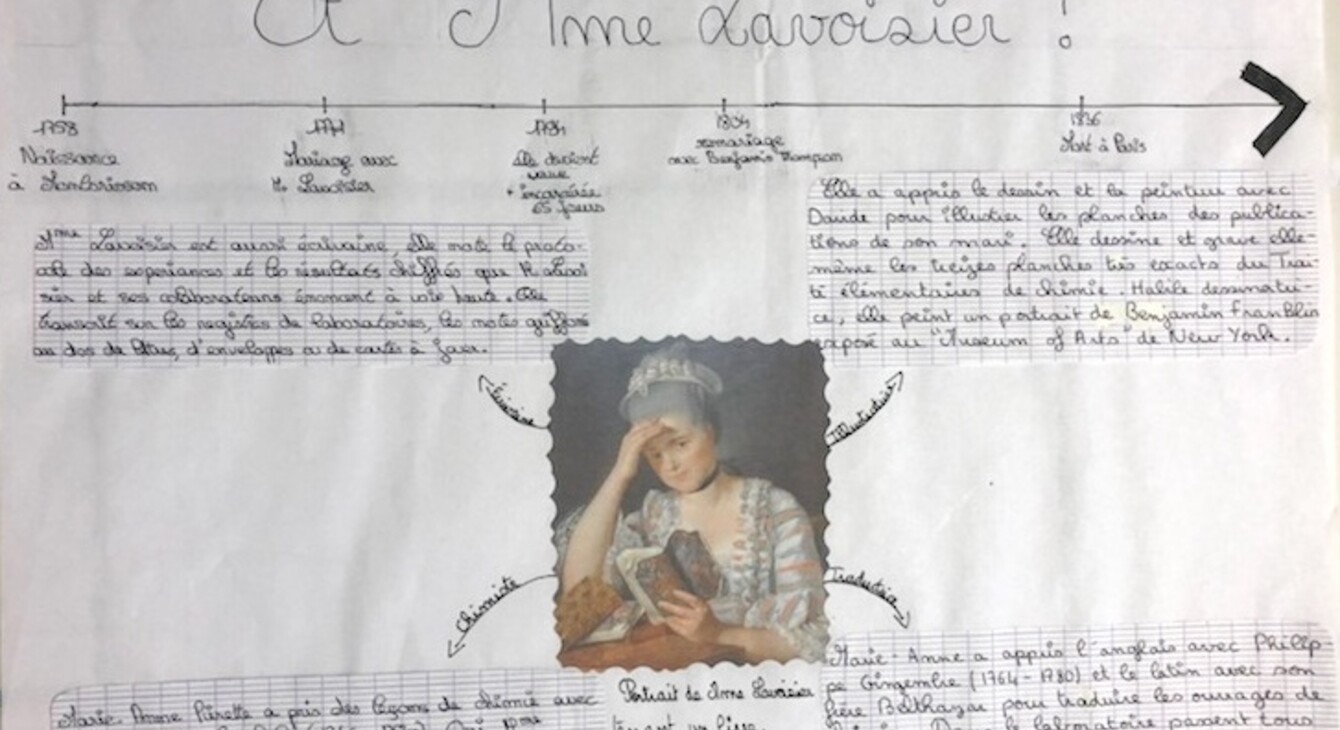 Et Mme Lavoisier !
1758
Naissance
à Montbrisson
1771
Mariage avec
M. Lavoisier
1794
Elle devient
veuve
+ incarcérée
65 jours
1804
remariage
avec Benjamin Thompson
1836
Mort à Paris
Mme Lavoisier est aussi écrivaine, elle note le proto-
cole des experiences et les résultats chiffrés que M. Lavoi
sier et ses collaborateurs énoncent à voix haute. Elle
transcrit sur les registres de laboratoires, les notes
au dos de d'enveloppes ou de cartes à jouer.
Elle a appris le dessin et la peinture avec
Davide pour illustrer les planches des publica-
tions de son mari. Elle dessine et grave elle-
même les treizes planches très exacts du Trai-
té élémentaires de chimie. Habile dessinatri-
ce, elle peint un portrait de Benjamin Franklin
exposé au "Museum of Arts" de New York.
Écrivaine
Illustratrice
Chimiste
Traductrice
Marie-Anne Pierette a pris des leçons de chimie avec
Portrait de Mme Lavoisier
tenant un livre.
Marie-Anne a appris l'anglais avec Philip-
pe Gingembre (1764-1780) et le latin avec son
frère Balthazar pour traduire les ouvrages de
le laboratoire passent tous